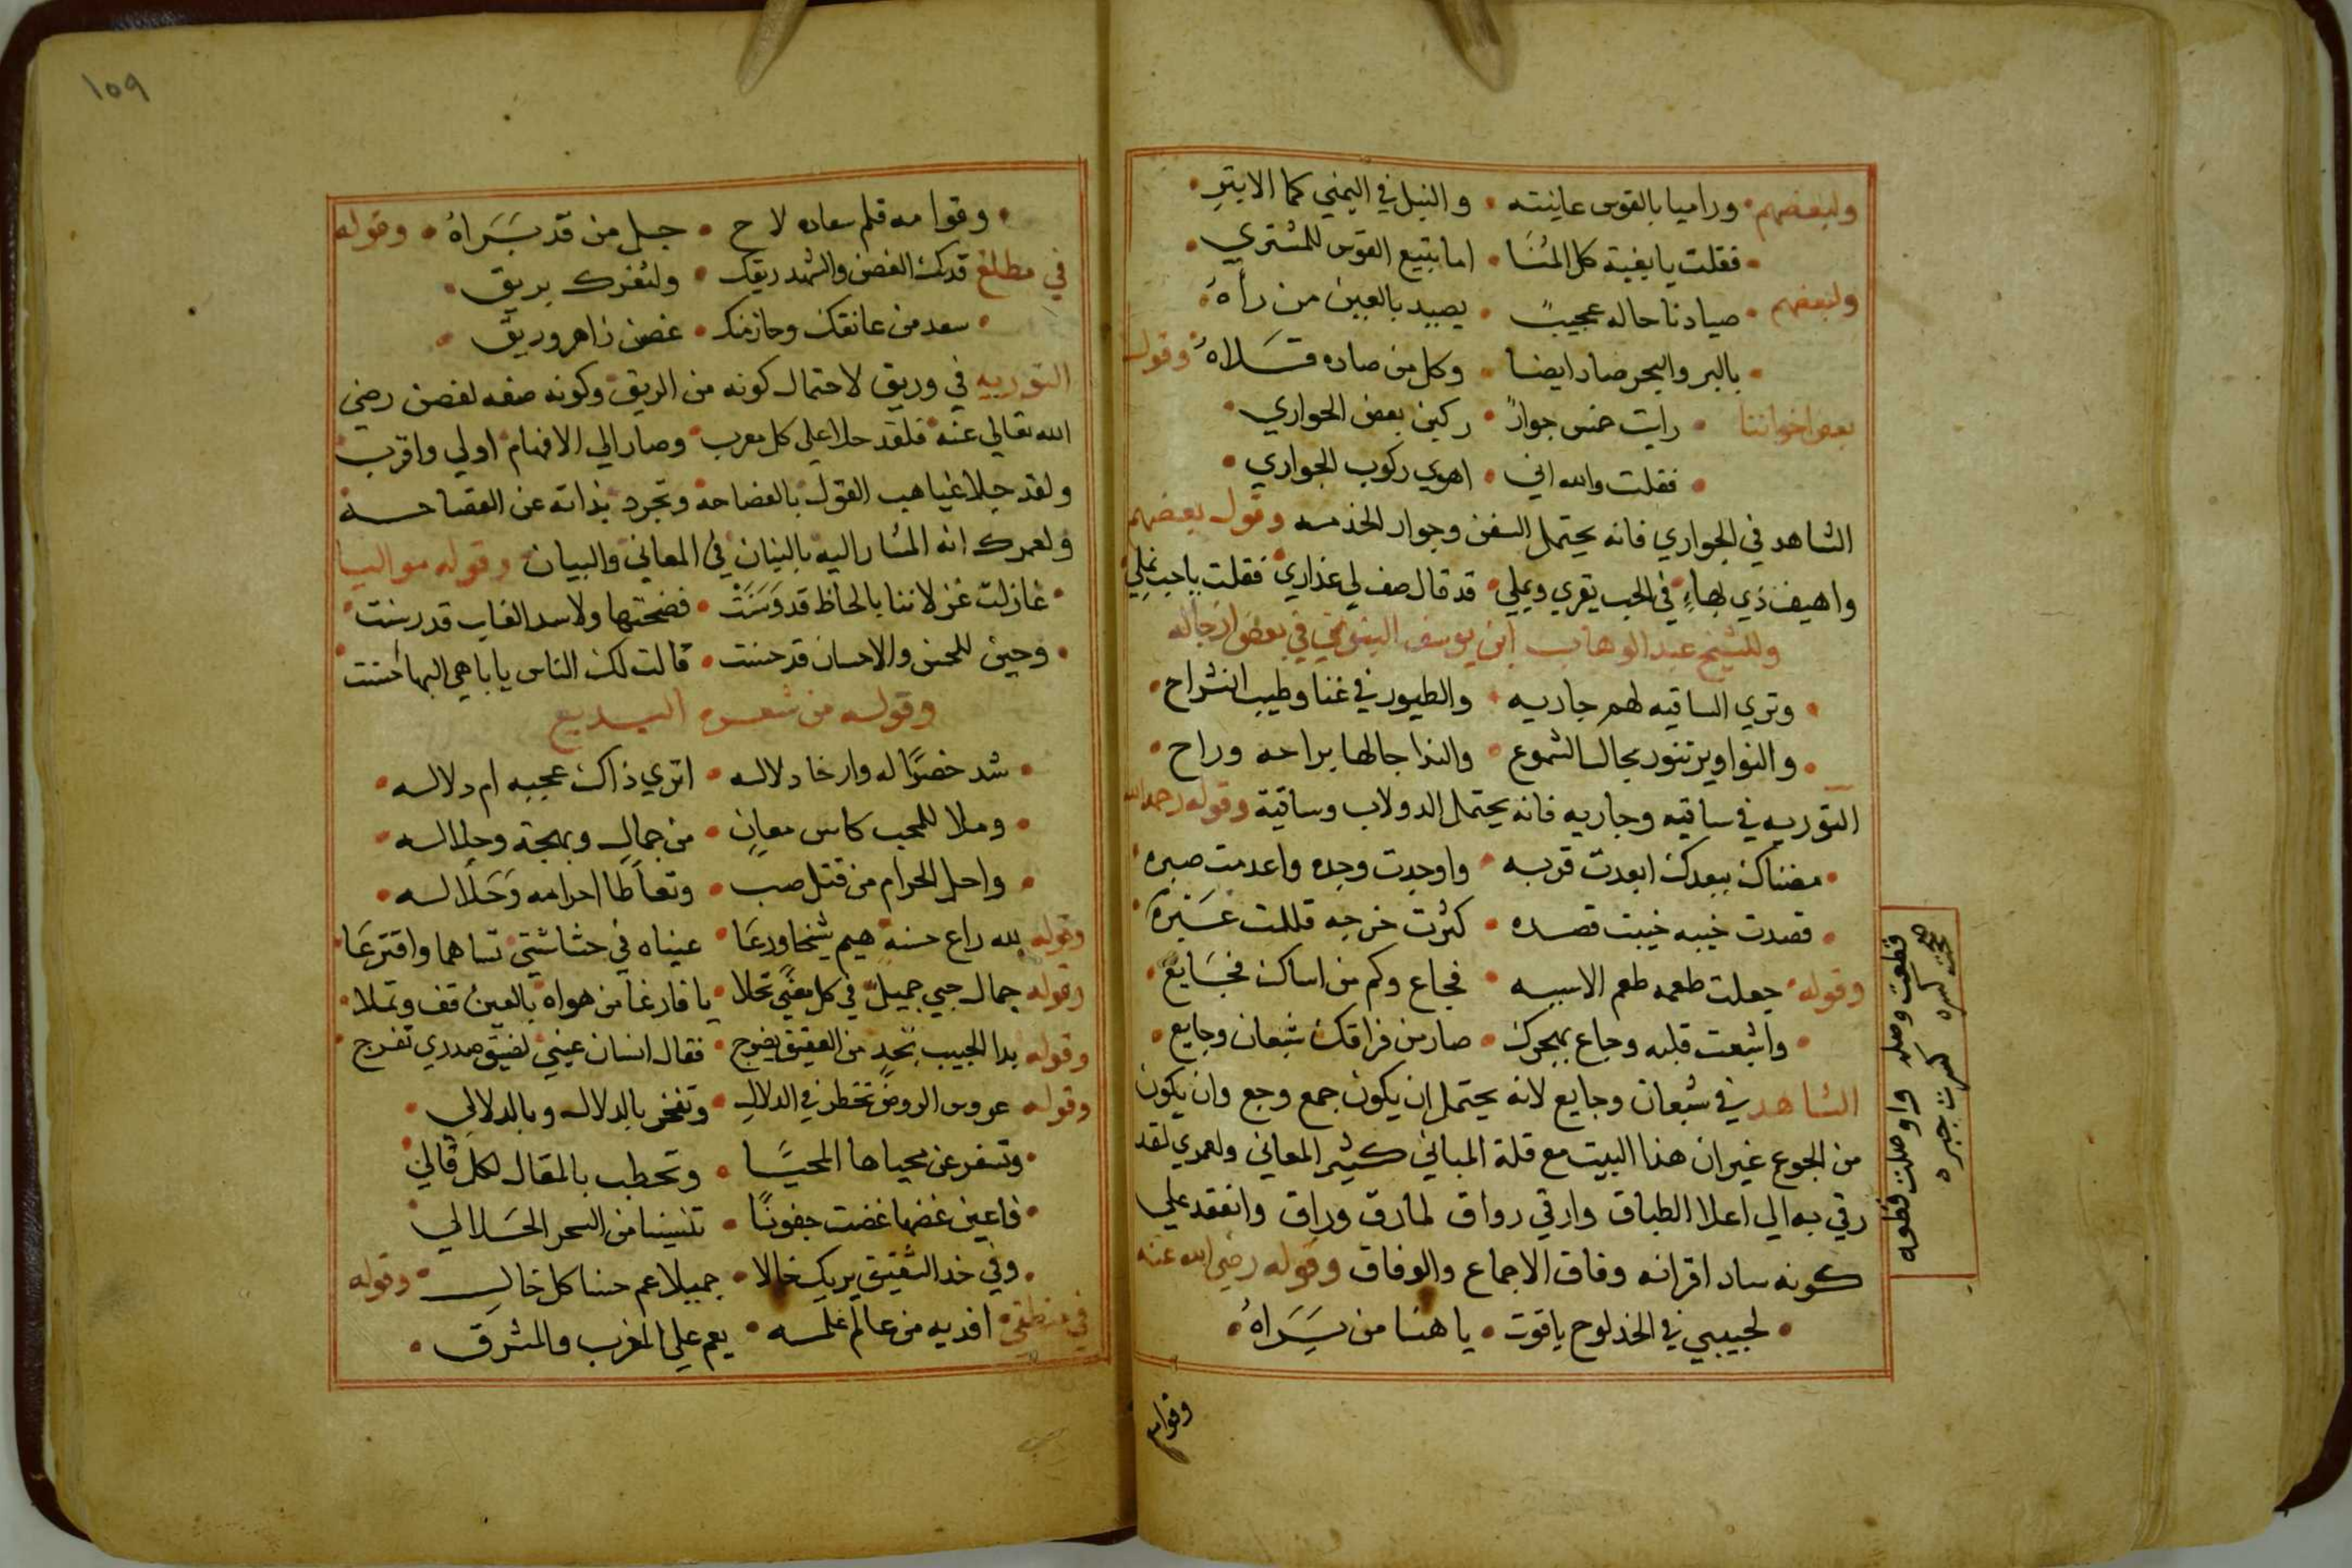 ولبعضهم • وراميا بالقوس عاينته • والنبل في اليمني كما الايتر •
• فقلت يا بغية كل المنا • اما بتبيع القوس للمشتري •
ولبعضهم • صيادنا حاله عجيب • يصيد بالعين من رأه •
• بالبر والبحر صاد ايضا • وكل من صاده قلاه وقول
بعض اخواننا • رايت خمس جوار • ركبن بعض الجواري •
• فقلت والله اني • اهوي ركوب الجواري •
الشاهد في الجواري فانه يحتمل السفن وجوار الخدمه وقول بعضهم
واهيف ذي بهاء في الحب يقري ويملي • قد قال صف لي عذاري فقلت ياحب نملي
وللشيخ عبد الوهاب ابن يوسف في بعض ازجاله
• وتري الساقيه لهم جاريه • والطيور في غنا وطيب انشراح •
• والنواوير تنور بحال الشموع • والندا جالها براحه وراح •
التوريه في ساقيه وجاريه فانه يحتمل الدولاب وساقية وقوله رحمه الله
• مضناك ببعدك ابعدت قربه • واوجدت وجده واعدمت صبره
• قصدت خيبه خيبت قصده • كثرت خرجه قللت
وقوله • جعلت طعمه طعم الاسيه • فجاع وكم من اساك فجايع •
• واشبعت قلبه وجاع بهجرك • صار من فراقك شبعان وجايع •
الشاهد في شبعان وجايع لانه يحتمل ان يكون جمع وجع وان يكون
من الجوع غير ان هذا البيت مع قلة المباني كثير المعاني ولعمري لقد
رقي به الي اعلا الطباق وارقي رواق لمارق وراق وانعقد علي
كونه ساد اقرانه وفاق الاجماع والوفاق وقوله رضي الله عنه
• لحبيبي في الخد لوح ياقوت • يا هنا من يراه •
قطعت وصله واوصلت قطعه
كسره كسرت جبره
وقوامه
١٥٩
• وقوامه قلم سعاده لاح • جل من قد براه • وقوله
في مطلع قدك الغصن والشهد ريقك • ولثغرك بريق •
• سعد من عانقك وحاز منك • غصن زاهر وريق •
التوريه في وريق لاحتمال كونه من الريق وكونه صفه لغصن رضي
الله تعالي عنه فلقد حلا علي كل معرب وصار الي الافهام اولي واقرب
ولقد جلا غياهب القول بالفضاحة وتجرد بذاته عن الفصاحة
ولعمرك انه المشار اليه بالبنان في المعاني والبيان وقوله مواليا
• غازلت غزلاننا بالحاظ قد وسنت • فضحتها ولاسد الغاب قد رسنت
• وحين للحسن والاحسان قد حسنت • قالت لك الناس يا باهي البها حسنت
وقوله من شعره البديع
• شد خصرا له وارخا دلاله • اتري ذاك عجبه ام دلاله •
• وملا للمحب كاس معان • من جمال وبهجة وجلاله •
• واحل الحرام من قتل صب • وتعاطا احرامه وحلاله •
وقوله لله راع حسنه هيم شيخا ورعا • عيناه في حشاشتي تساهما واقترعا
وقوله جمال حبي جميل في كل معني تحلا • يا فارغا من هواه بالعين قف وتملا •
وقوله بدا الحبيب بخد من العقيق يضرج • فقال انسان عيني لضيق صدري تفرج
وقوله عروس الروض تخطر في الدلال • وتفخر بالدلاله وبالدلالي •
• وتسفر عن محياها المحيا • وتخطب بالمقال لكل قالي
• فاعين غضها غضت جفونا • تنسينا من السحر الحلالي
• وفي خد الشقيق يريك خالا • جميلا عم حسنا كل خال • وقوله
في منطقي • افديه من عالم علمه • يعم علي المغرب والمشرق •